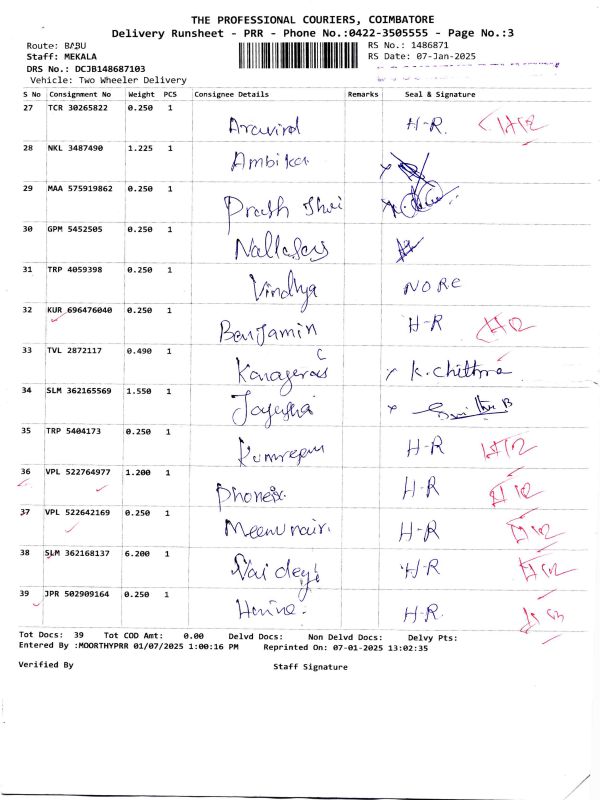 THE PROFESSIONAL COURIERS, COIMBATORE
Delivery Runsheet - PRR - Phone No.:0422-3505555 - Page No.:3
Route: BABU RS No.: 1486871
Staff: MEKALA RS Date: 07-Jan-2025
DRS No.: DCJB148687103
Vehicle: Two Wheeler Delivery
S No Consignment No Weight PCS Consignee Details Remarks Seal & Signature
27 TCR 30265822 0.250 1 Aravind H-R.
28 NKL 3487490 1.225 1 Ambika
29 MAA 575919862 0.250 1
30 GPM 5452505 0.250 1
31 TRP 4059398 0.250 1 Vindhya NORE
32 KUR 696476040 0.250 1 Benjamin H-R
33 TVL 2872117 0.490 1 x K.chithra
34 SLM 362165569 1.550 1 x
35 TRP 5404173 0.250 1 H-R
36 VPL 522764977 1.200 1 H-R
37 VPL 522642169 0.250 1 Meenu nair. H-R
38 SLM 362168137 6.200 1 H-R
39 JPR 502909164 0.250 1 H-R.
Tot Docs: 39 Tot COD Amt: 0.00 Delvd Docs: Non Delvd Docs: Delvy Pts:
Entered By :MOORTHYPRR 01/07/2025 1:00:16 PM Reprinted On: 07-01-2025 13:02:35
Verified By Staff Signature